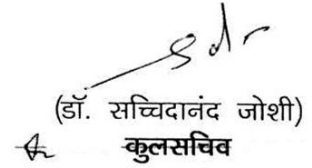 (डॉ. सच्चिदानंद जोशी)
कुलसचिव